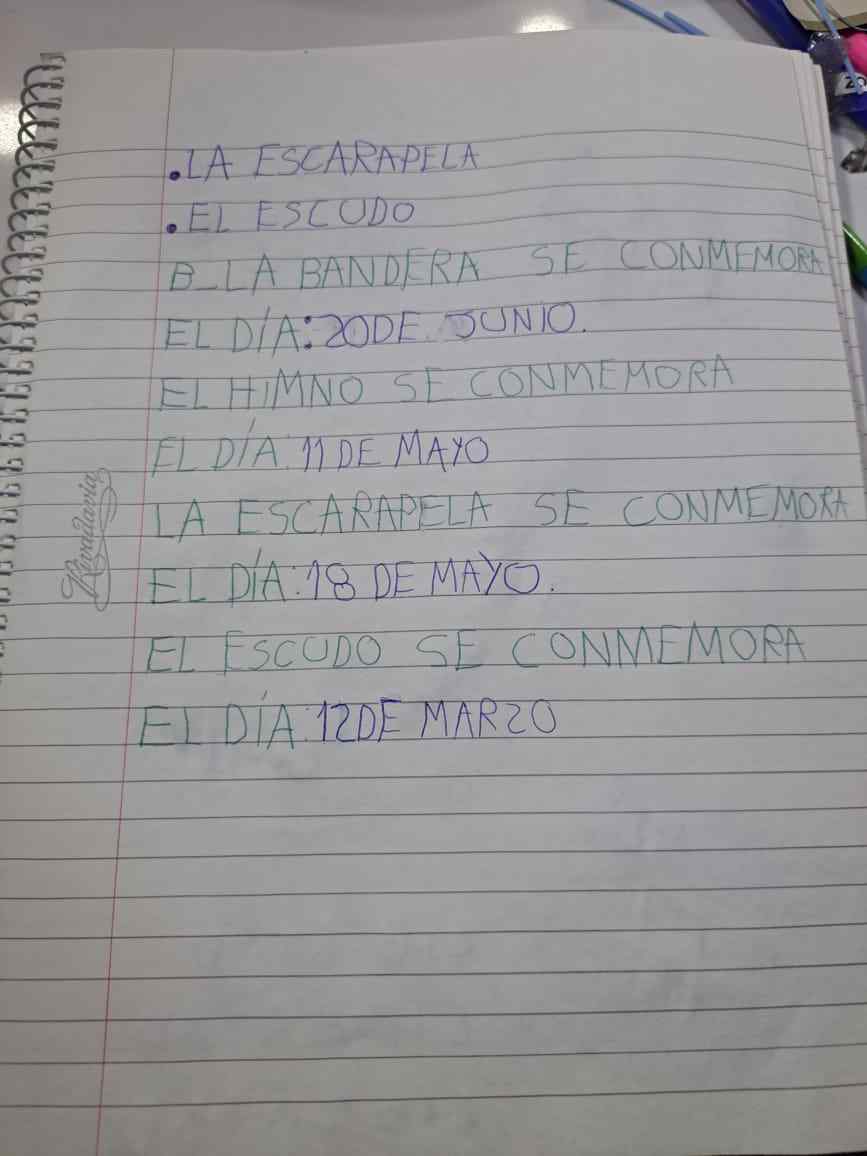 .LA ESCARAPELA
.EL ESCUDO
B_LA BANDERA SE CONMEMORA
EL DÍA: 20 DE JUNIO.
EL HIMNO SE CONMEMORA
EL DÍA: 11 DE MAYO
LA ESCARAPELA SE CONMEMORA
EL DÍA: 18 DE MAYO.
EL ESCUDO SE CONMEMORA
EL DÍA: 12 DE MARZO
Rivadavia
20